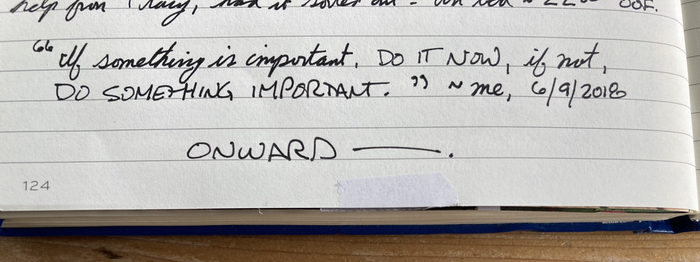 help from Tracy, had it sorted out - 
OOF.
"If something is important, DO IT NOW, if not,
DO SOMETHING IMPORTANT." ~ me, 6/9/2018
ONWARD —.
124